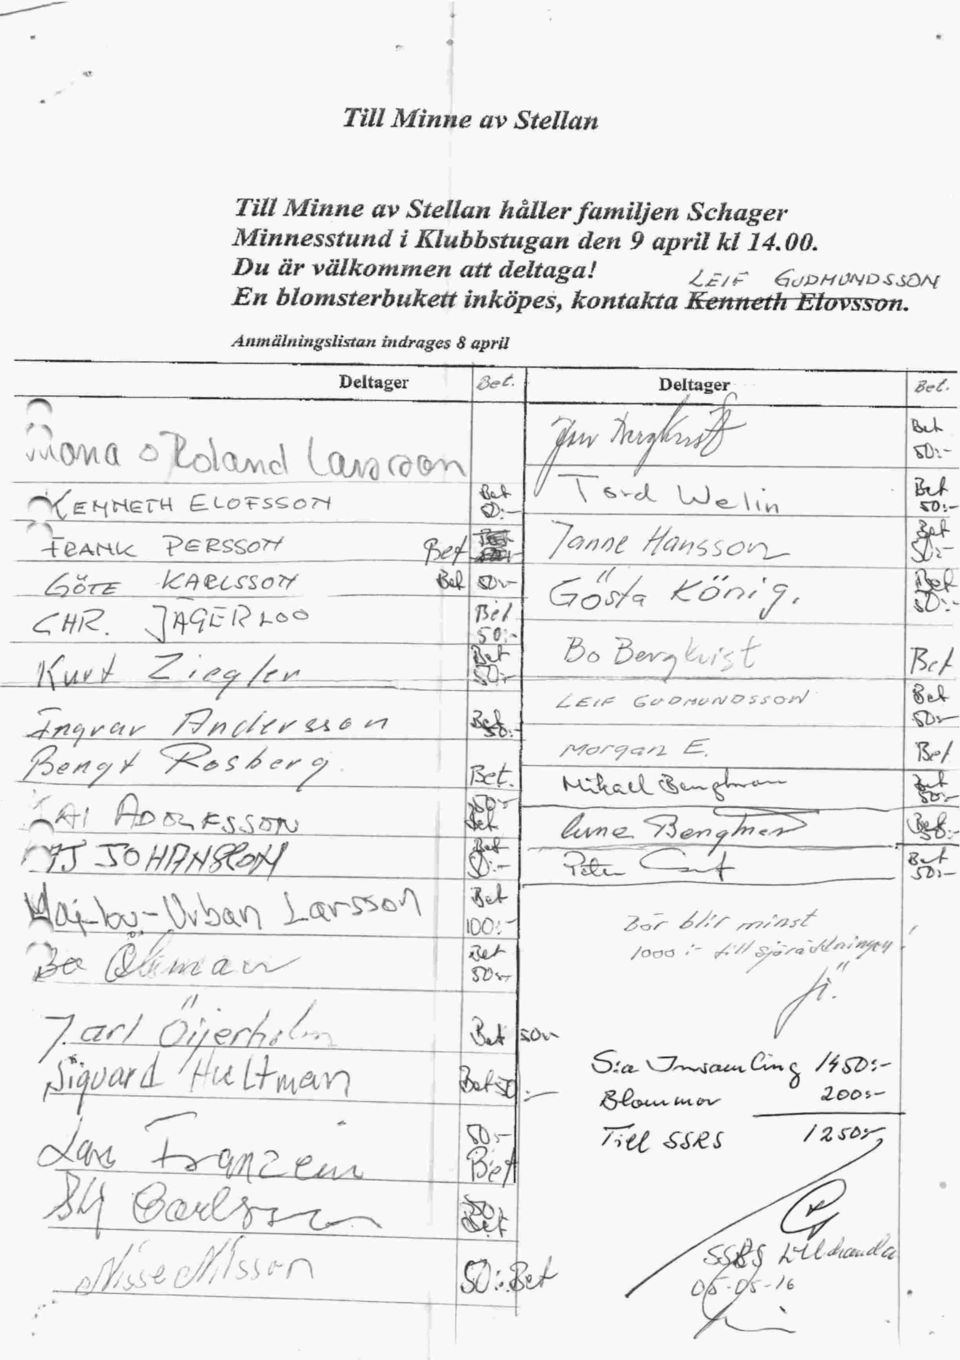 Till Minne av Stellan
Till Minne av Stellan håller familjen Schager
Minnesstund i Klubbstugan den 9 april kl 14.00.
Du är välkommen att deltaga!
LEIF GUDMUNDSSON
En blomsterbukett inköpes, kontakta Kenneth Elovsson.
Anmälningslistan indrages 8 april
Deltager Bet.
Mona o Roland Larsson
KENNETH ELOFSSON Bet 50:-
FRANK PERSSON Bet
GÖTE KARLSSON Bet 50:-
CHR. JÄGERLOO Bet 50:-
Kurt Ziegler Bet 50:-
Ingvar Andersson Bet 50:-
Bengt Rosberg. Bet.
50:-
KAI ADOLFSSON Bet
JOHANSSON Bet 50:-
Maj-Lou-Urban Larsson Bet 100:-
Bo Öhman Bet 50:-
Jarl Öijerholm Bet 50:-
Sigvard Hultman Bet 50:-
Lars Franzein 50:- Bet
Carlsson 50:- Bet
Nisse Nilsson 50:- Bet
Deltager Bet.
Bet 50:-
Tord Welin Bet 50:-
Janne Hansson Bet 50:-
Gösta König. Bet 50:-
Bo Bergkvist Bet
LEIF GUDMUNDSSON Bet 50:-
Morgan E. Bet
Mikael Bengtman Bet 50:-
Bengtman Bet 50:-
Peter Bet 50:-
Bör blir minst
1000:- till sjöräddningen!
S:a Insamling 1450:-
Blommor 200:-
Till SSRS 1250:-
SSRS tillhanda
05-05-16